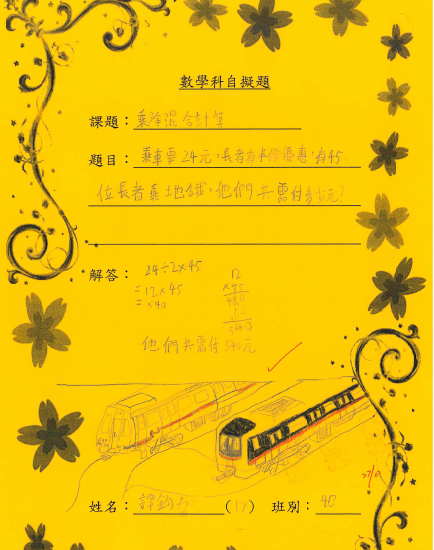 數學科自擬題
課題：乘除混合計算
題目：乘車票24元，長者有半價優惠，有45
位長者乘地鐵，他們共需付多少元？
解答：24÷2×45
=12×45
=540
12
×45
540
他們共需付540元
姓名：譚 (17) 班別：4D